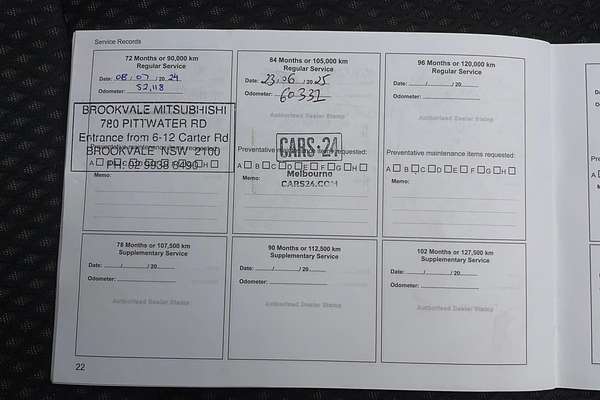 Service Records
72 Months or 90,000 km
Regular Service
Date: 08 / 07 / 20 24
Odometer: 52,118
Authorised Dealer Stamp
BROOKVALE MITSUBHISHI
780 PITTWATER RD
Entrance from 6-12 Carter Rd
BROOKVALE NSW 2100
PH: 02 9938 8490
Preventative maintenance items requested:
A B C D E F G H
Memo:
84 Months or 105,000 km
Regular Service
Date: 23 / 06 / 20 25
Odometer: 60331
Authorised Dealer Stamp
CARS·24
Preventative maintenance items requested:
A B C D E F G H
Melbourne
CARS24.COM
Memo:
96 Months or 120,000 km
Regular Service
Date: / / 20
Odometer:
Authorised Dealer Stamp
Preventative maintenance items requested:
A B C D E F G H
Memo:
78 Months or 107,500 km
Supplementary Service
Date: / / 20
Odometer:
Authorised Dealer Stamp
90 Months or 112,500 km
Supplementary Service
Date: / / 20
Odometer:
Authorised Dealer Stamp
102 Months or 127,500 km
Supplementary Service
Date: / / 20
Odometer:
Authorised Dealer Stamp
22